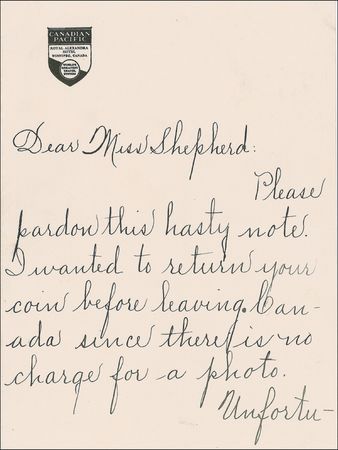 CANADIAN
PACIFIC
ROYAL ALEXANDRA
HOTEL
WINNIPEG, CANADA
WORLD'S
GREATEST
TRAVEL
SYSTEM
Dear Miss Shepherd:
Please
pardon this hasty note.
I wanted to return your
coin before leaving Can-
ada since there is no
charge for a photo.
Unfortu-